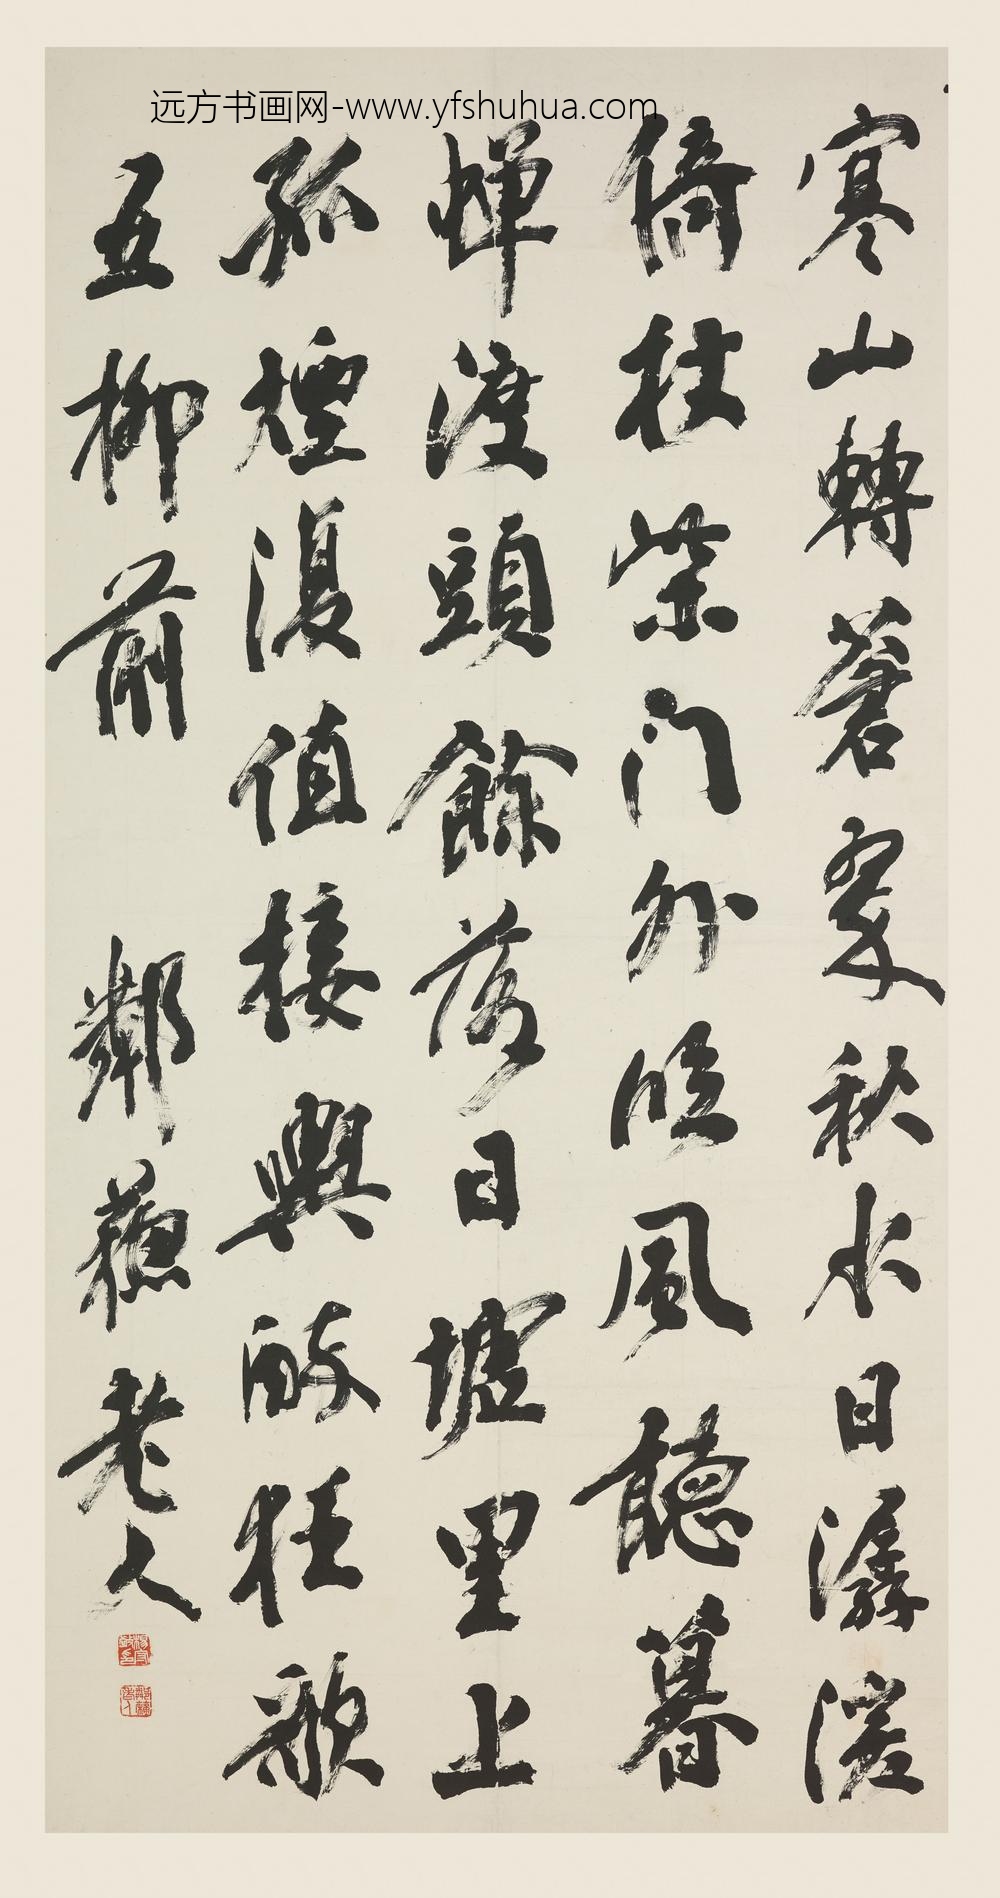 远方书画网-www.yfshuhua.com
寒山轉蒼翠秋水日潺湲
倚杖柴门外臨風聽暮
蟬渡頭餘落日墟里上
孤煙復值接輿醉狂歌
五柳前
鄰蘇老人